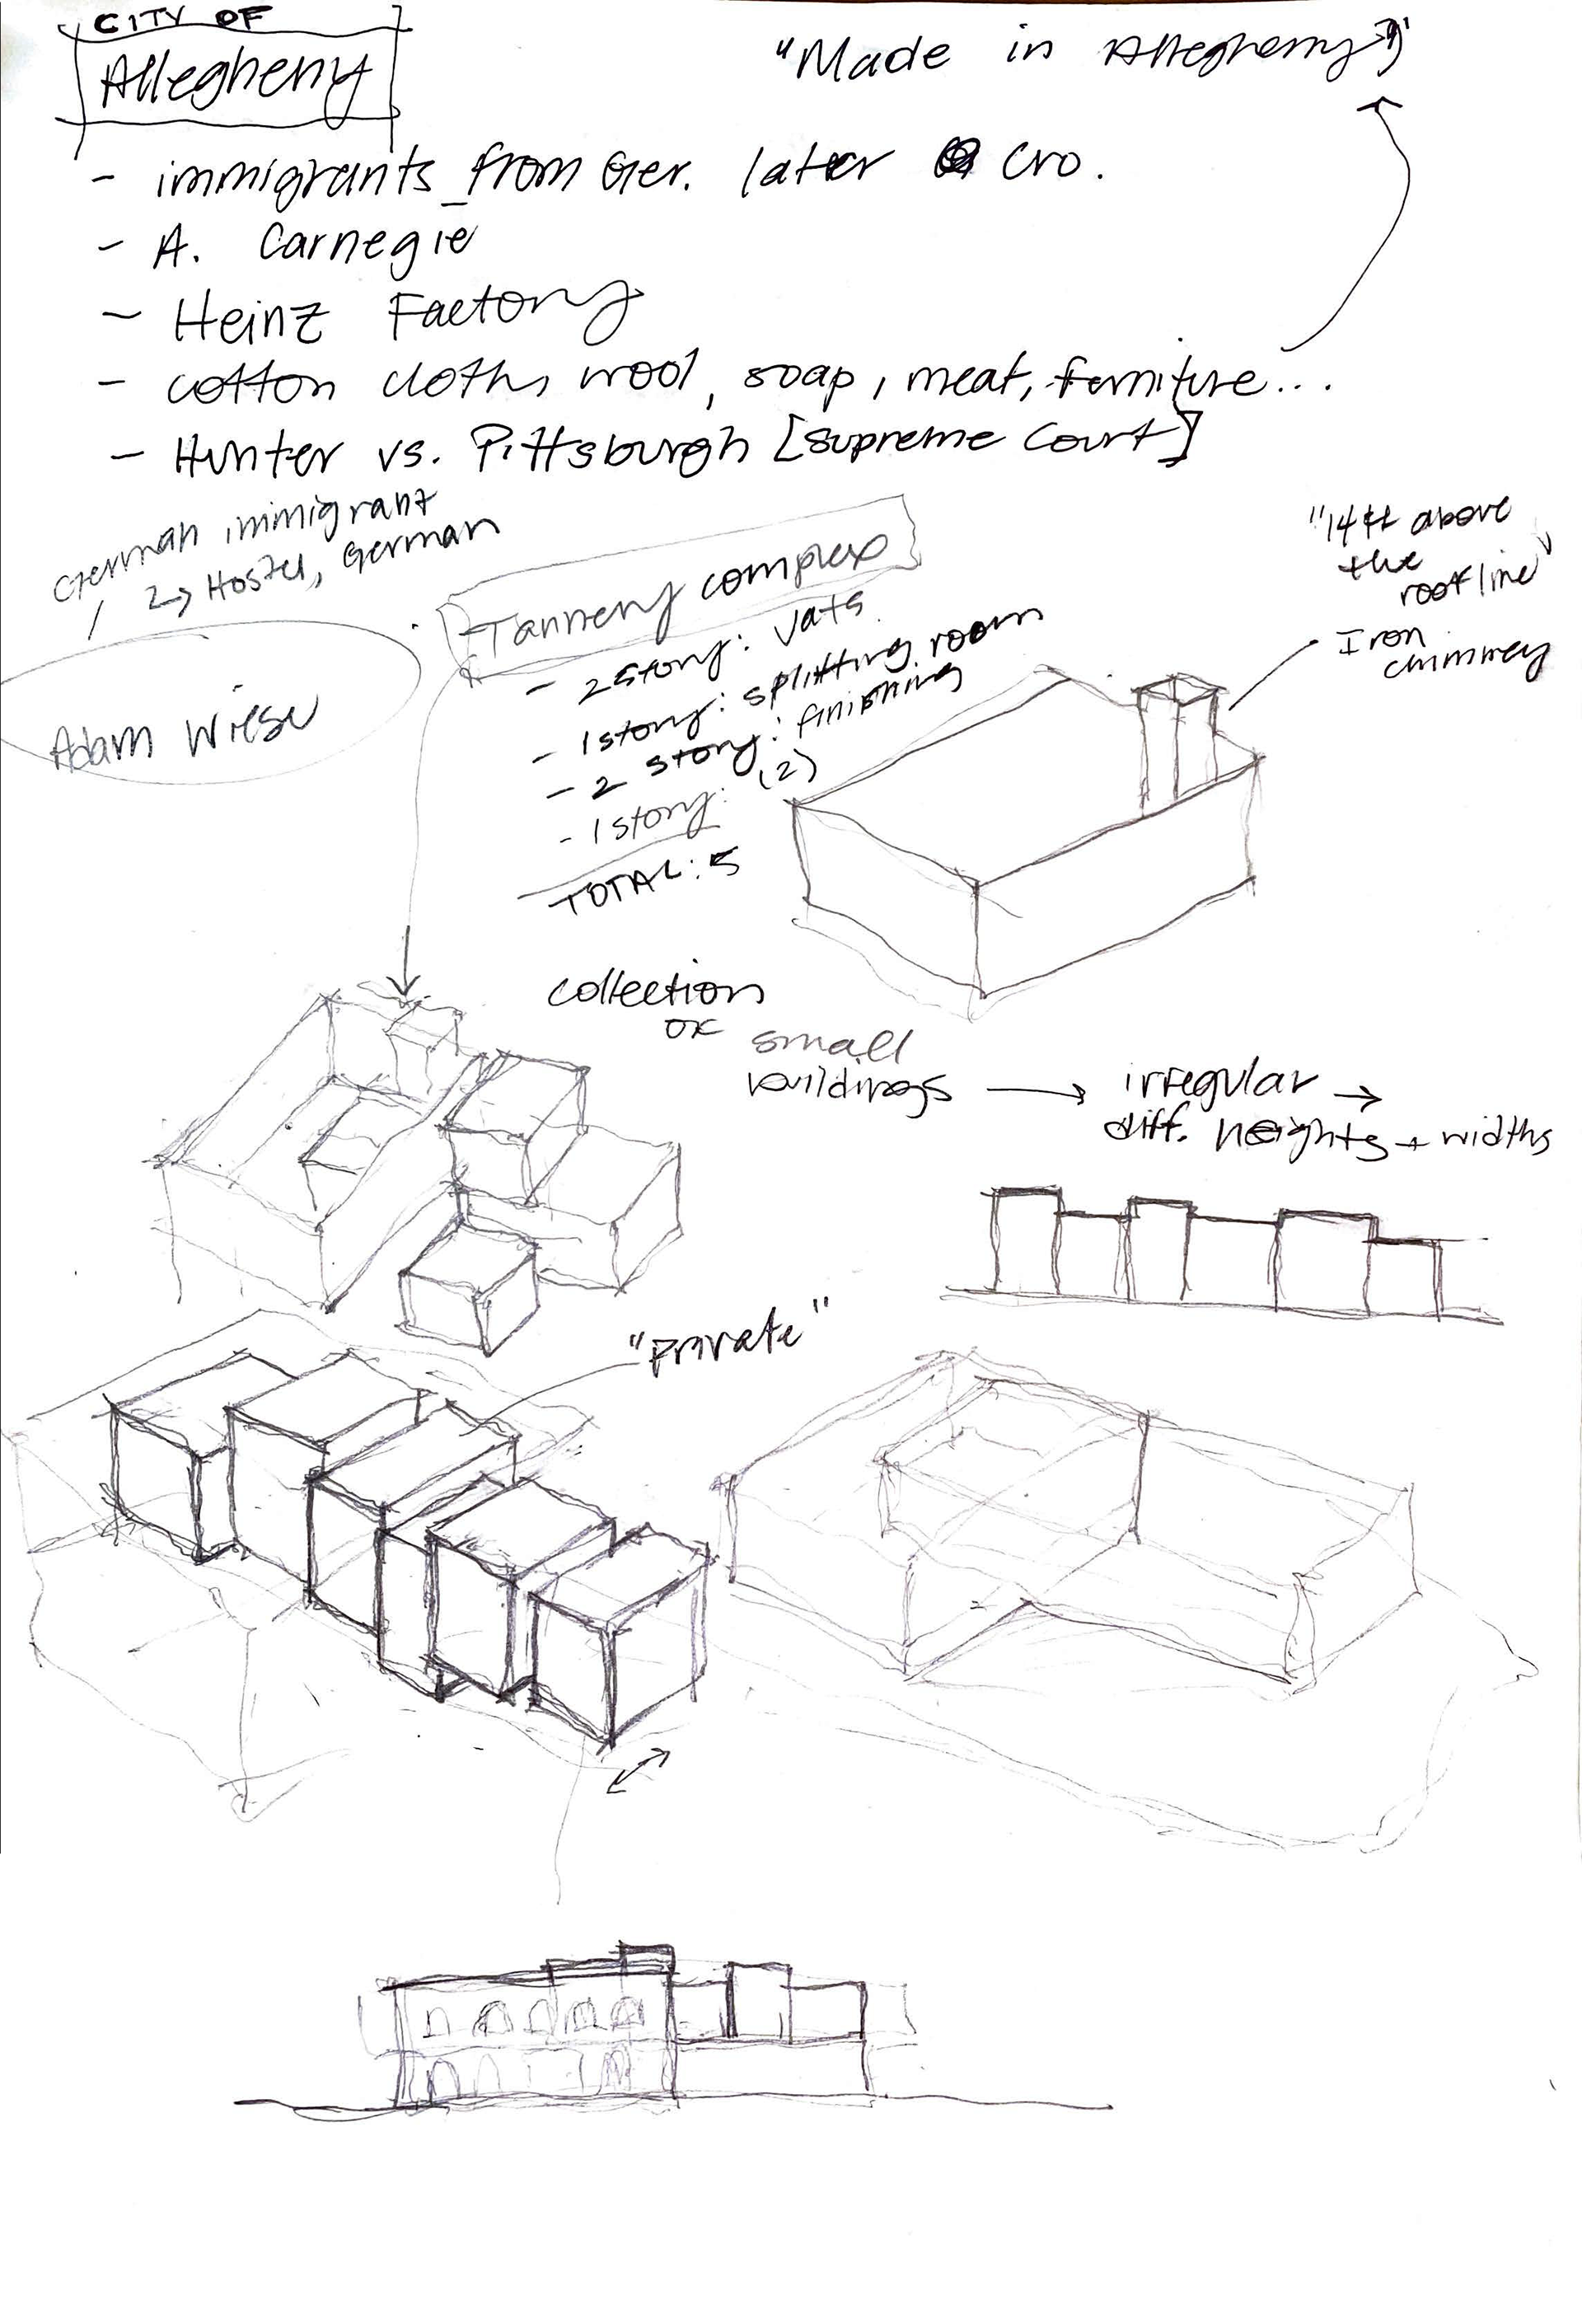 CITY OF
Allegheny
"Made in Allegheny"
- immigrants from Ger. later Cro.
- A. Carnegie
- Heinz Factory
- cotton cloths, wool, soap, meat, furniture...
- Hunter vs. Pittsburgh [Supreme Court]
German immigrant
↳ Hostel, German
Adam Wiese
Tannery complex
- 2 story: vats
- 1 story: splitting room
- 2 story: finishing
- 1 story: (2)
TOTAL: 5
"14 ft above
the
roofline"
Iron
chimney
collection
of
small
buildings → irregular →
diff. heights + widths
"private"